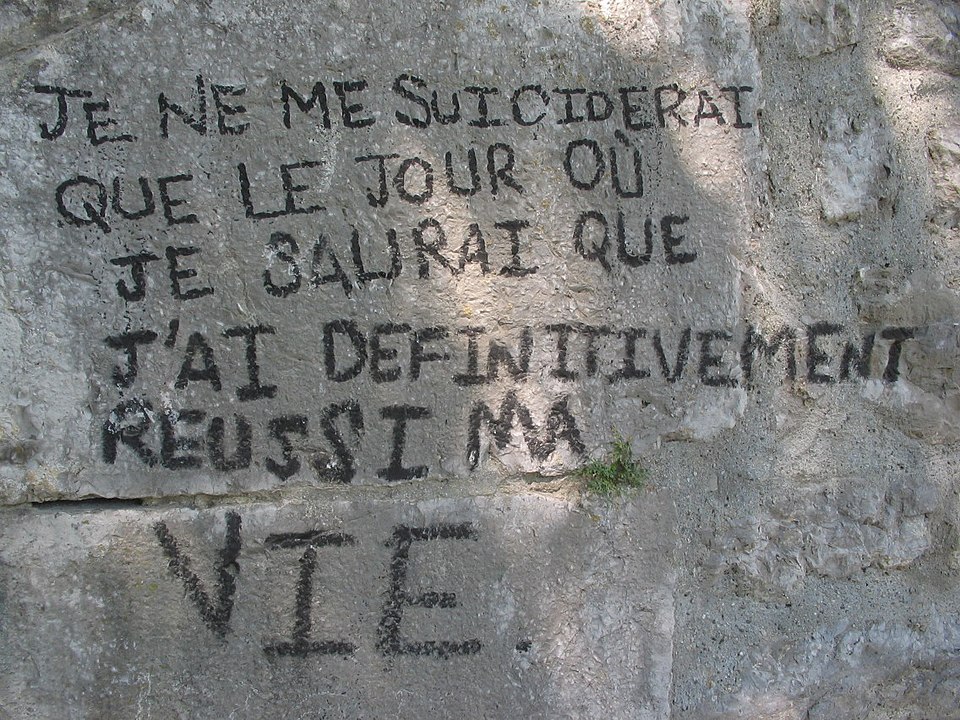 JE NE ME SUICIDERAI
QUE LE JOUR OÙ
JE SAURAI QUE
J'AI DEFINITIVEMENT
REUSSI MA
VIE.